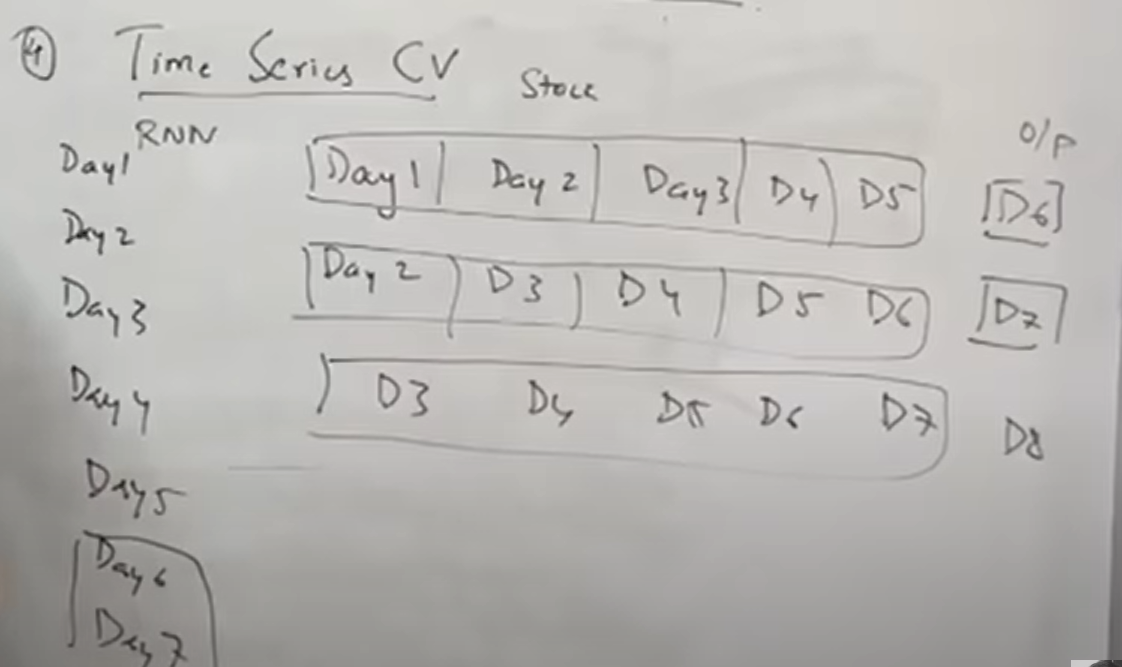 4 Time Series CV
Stock
RNN
O/P
Day1
Day 2
Day3
Day 4
Day5
Day 6
Day 7
Day 1 Day 2 Day3 D4 D5 D6
Day 2 D3 D4 D5 D6 D7
D3 D4 D5 D6 D7 D8